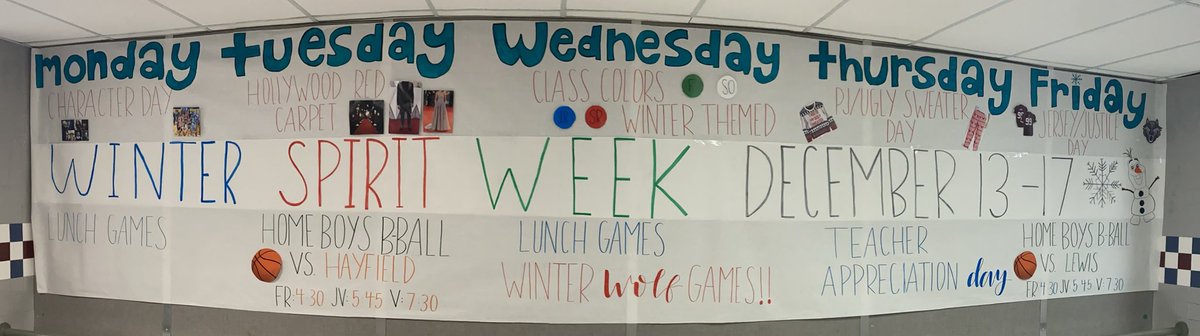 monday
tuesday
wednesday
thursday
Friday
CHARACTER DAY
HOLLYWOOD RED
CARPET
CLASS COLORS
F
SO
JR
SR
WINTER THEMED
PJ/UGLY SWEATER
DAY
JERSEY/JUSTICE
DAY
WINTER SPIRIT WEEK DECEMBER 13-17
LUNCH GAMES
HOME BOYS B-BALL
VS. HAYFIELD
FR: 4:30 JV: 5:45 V: 7:30
LUNCH GAMES
WINTER wolf GAMES!!
TEACHER
APPRECIATION day
HOME BOYS B-BALL
VS. LEWIS
FR: 4:30 JV: 5:45 V: 7:30